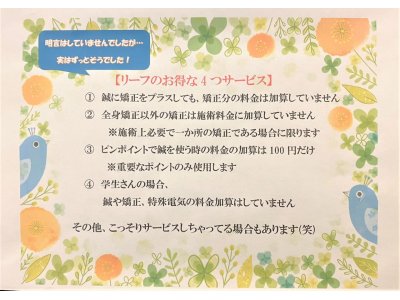 明言はしていませんでしたが…
実はずっとそうでした！
【リーフのお得な４つサービス】
① 鍼に矯正をプラスしても、矯正分の料金は加算していません
② 全身矯正以外の矯正は施術料金に加算していません
※施術上必要で一か所の矯正である場合に限ります
③ ピンポイントで鍼を使う時の料金の加算は 100 円だけ
※重要なポイントのみ使用します
④ 学生さんの場合、
鍼や矯正、特殊電気の料金加算はしていません
その他、こっそりサービスしちゃってる場合もあります(笑)